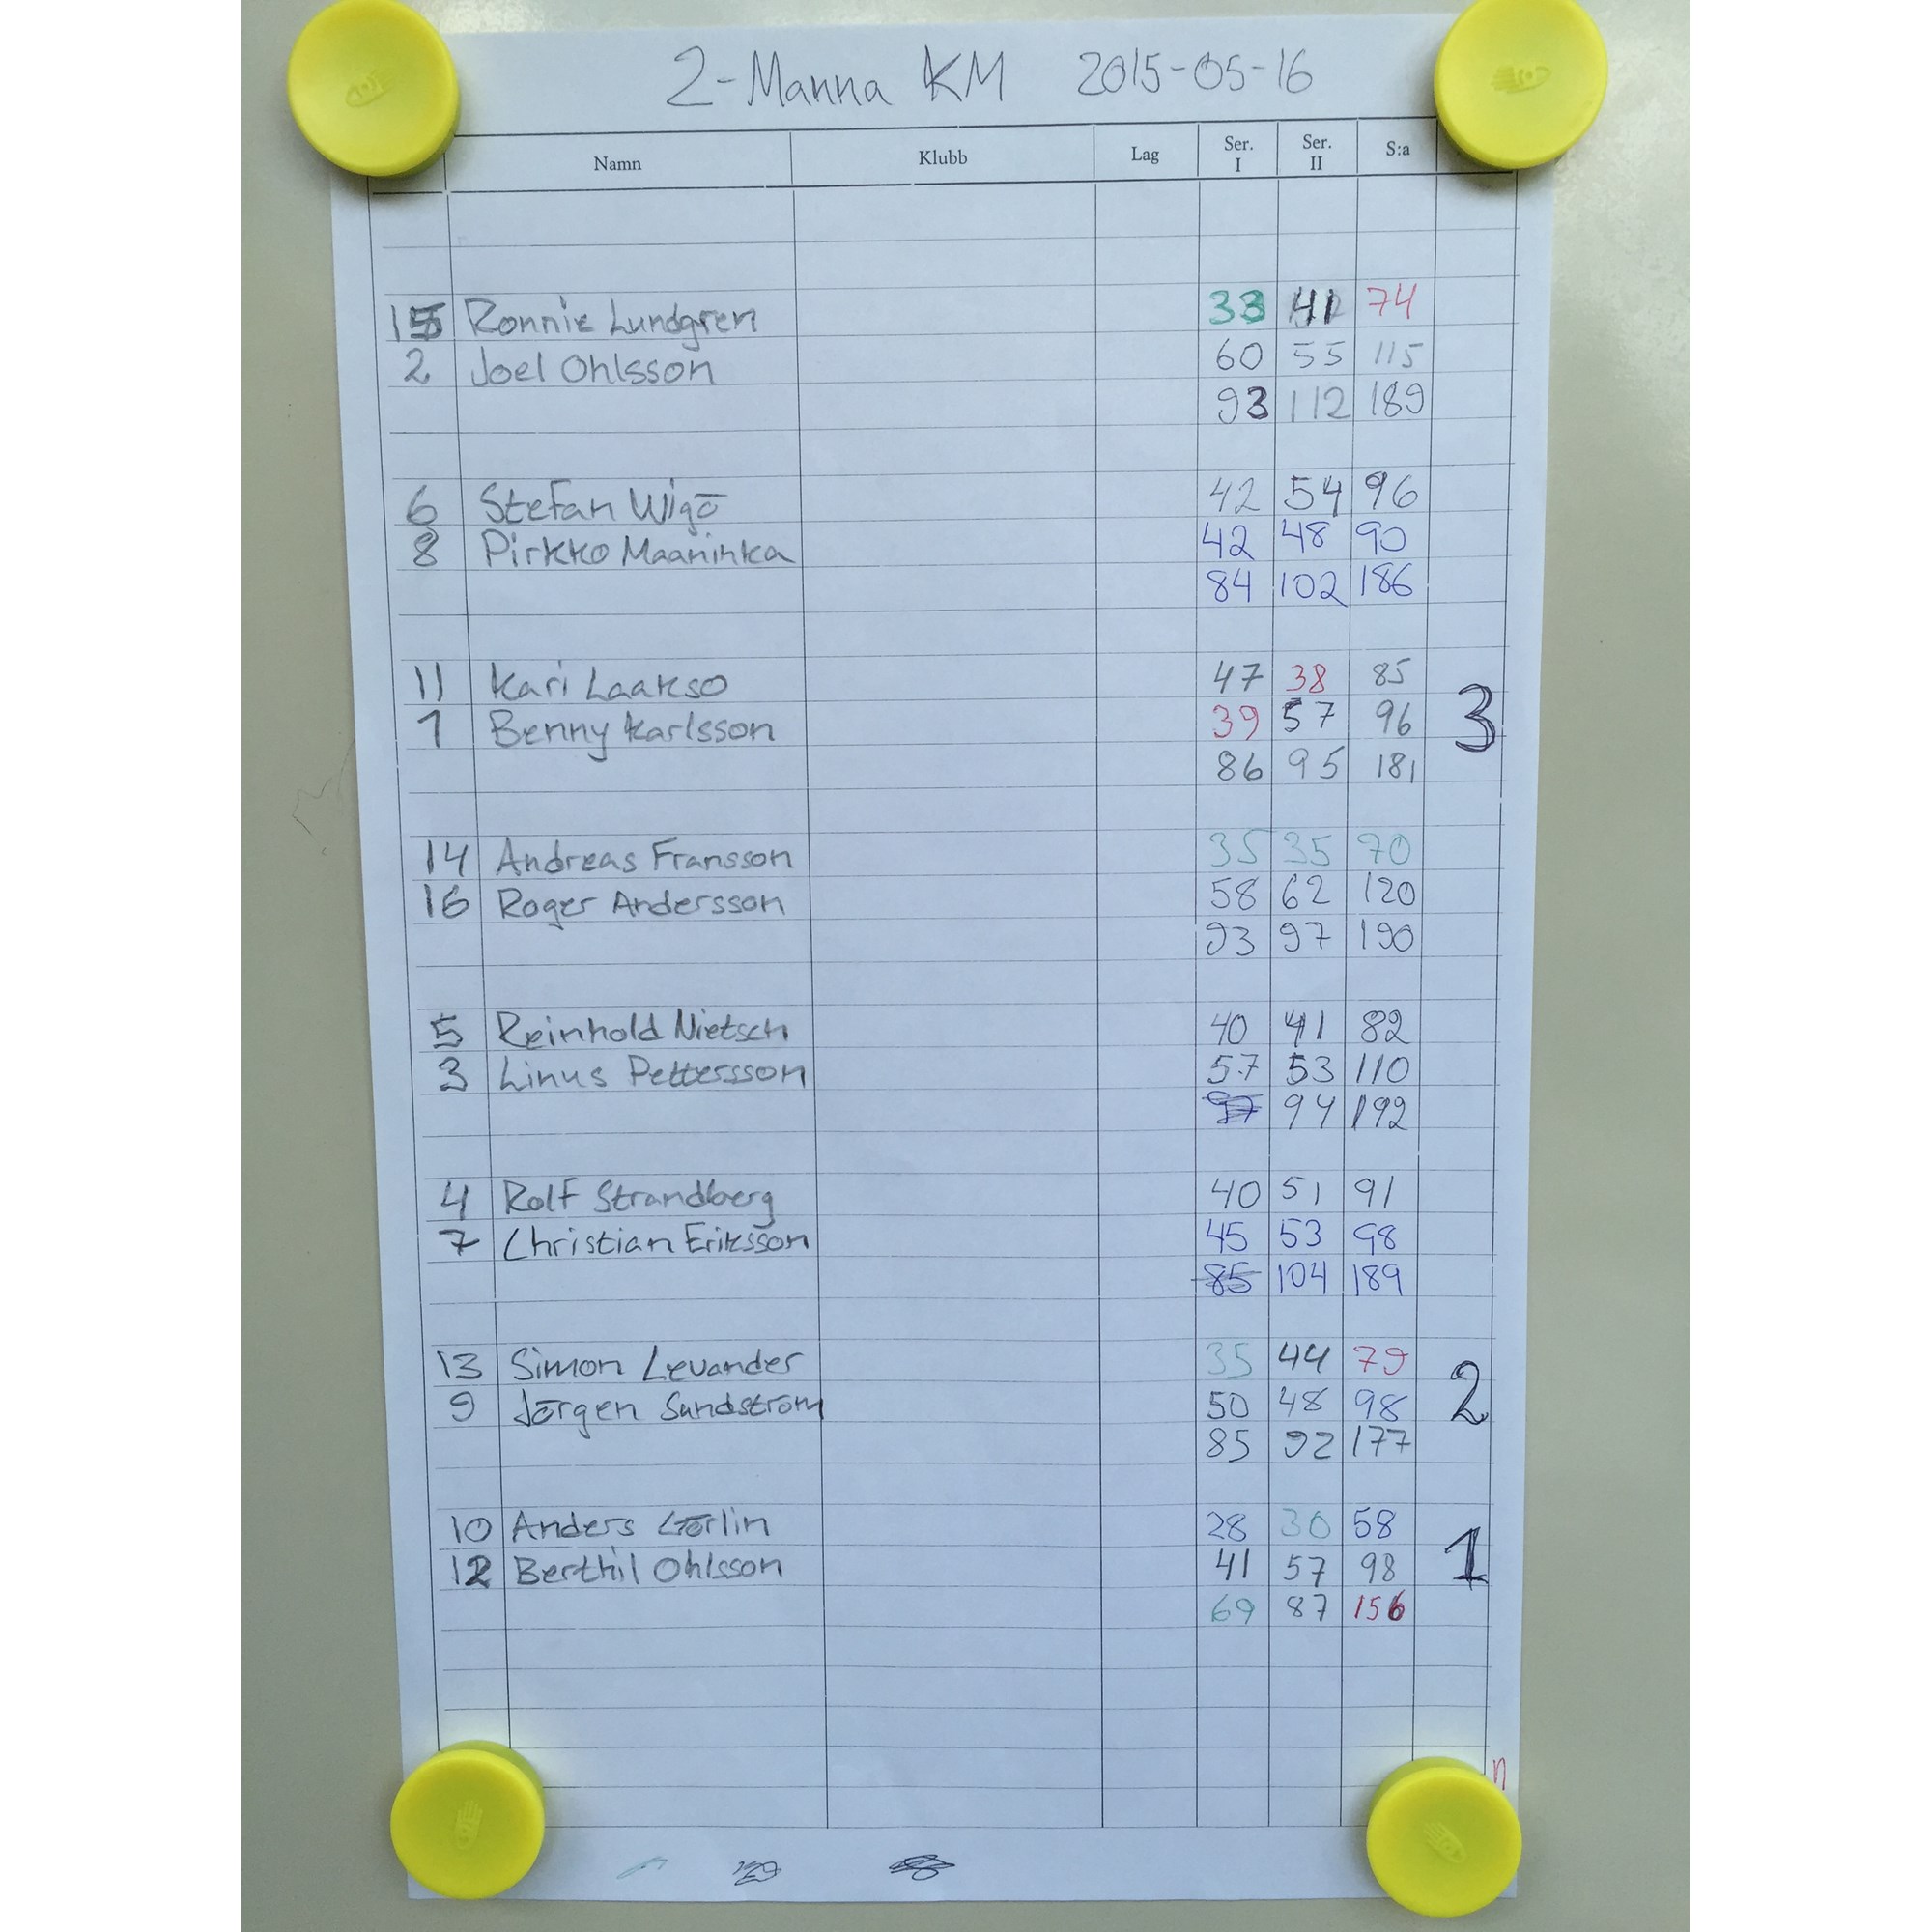 2-Manna KM 2015-05-16
Namn Klubb Lag Ser. I Ser. II S:a
15 Ronnie Lundgren 33 41 74
2 Joel Ohlsson 60 55 115
93 112 189
6 Stefan Wigö 42 54 96
8 Pirkko Maaninka 42 48 90
84 102 186
11 Kari Laakso 47 38 85
1 Benny Karlsson 39 57 96 3
86 95 181
14 Andreas Fransson 35 35 70
16 Roger Andersson 58 62 120
93 97 190
5 Reinhold Nietsch 40 41 82
3 Linus Pettersson 57 53 110
97 94 192
4 Rolf Strandberg 40 51 91
7 Christian Eriksson 45 53 98
85 104 189
13 Simon Levander 35 44 79
9 Jörgen Sundström 50 48 98 2
85 92 177
10 Anders 28 30 58
12 Berthil Ohlsson 41 57 98 1
69 87 156